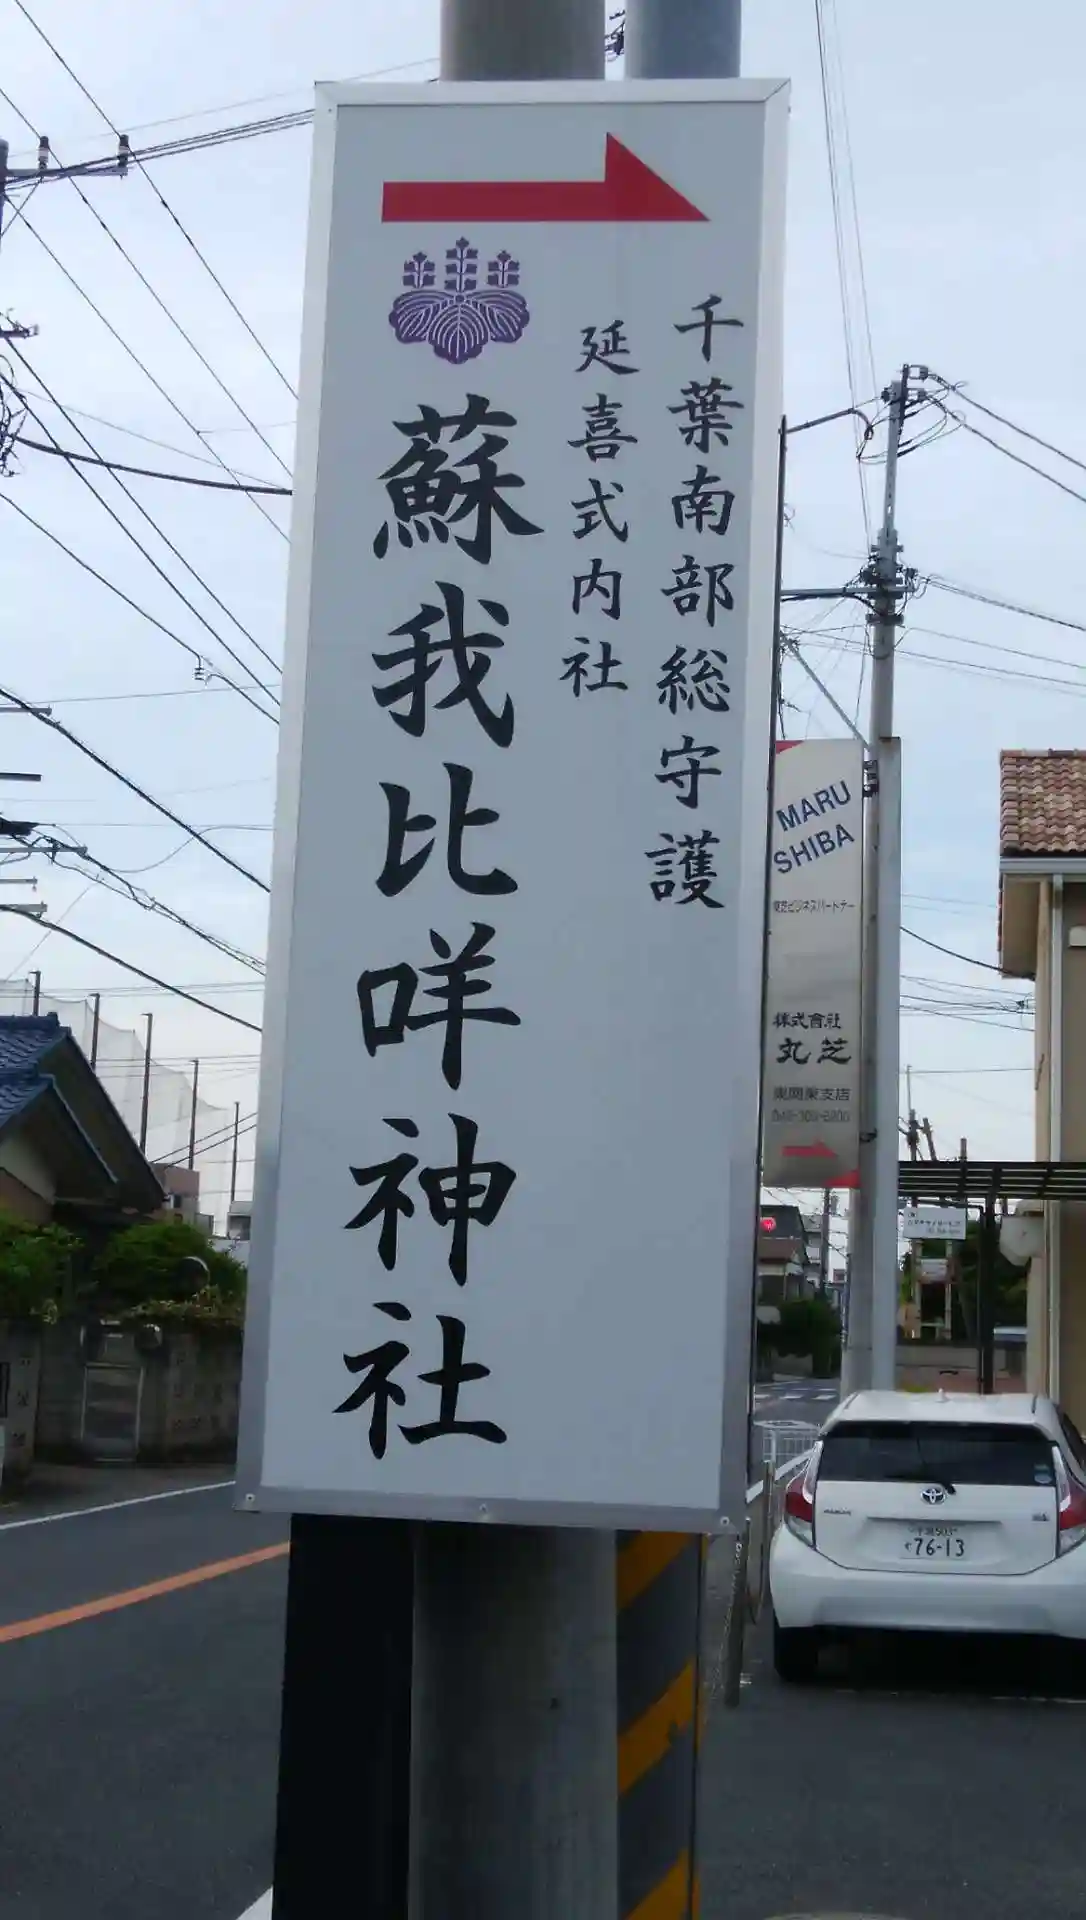 千葉南部総守護
延喜式内社
蘇我比咩神社
MARU
SHIBA
東芝ビジネスパートナー
株式會社
丸芝
東関東支店
76-13